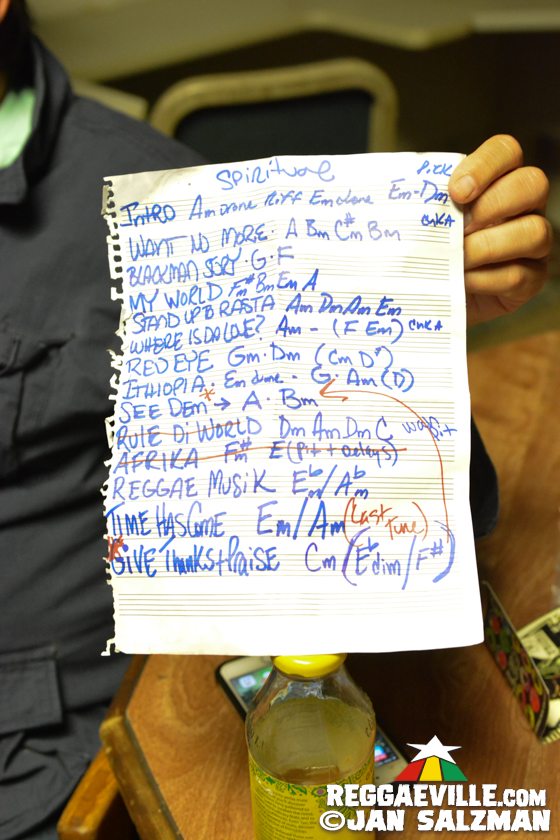 Spiritual
Pick
INTRO Am drone Riff Em drone Em-Dm
CNKA
WANT NO MORE · A Bm C#m Bm
BLACKMAN STORY · G · F
MY WORLD F#m Bm Em A
STAND UP TO RASTA Am Dm Am Em
WHERE IS DA LOVE? Am - (F Em) CNKA
RED EYE Gm · Dm (Cm D7)
ITHIOPIA · Em drone - G · Am (D)
SEE DEM * → A · Bm
RULE Di WORLD Dm Am Dm C
AFRIKA F#m E (Pit + Delays)
REGGAE MUSIK Ebm/Abm
TIME HAS COME Em/Am (Last Tune)
* GIVE THANKS + PRAISE Cm (Ebdim/F#)
REGGAEVILLE.COM
©JAN SALZMAN